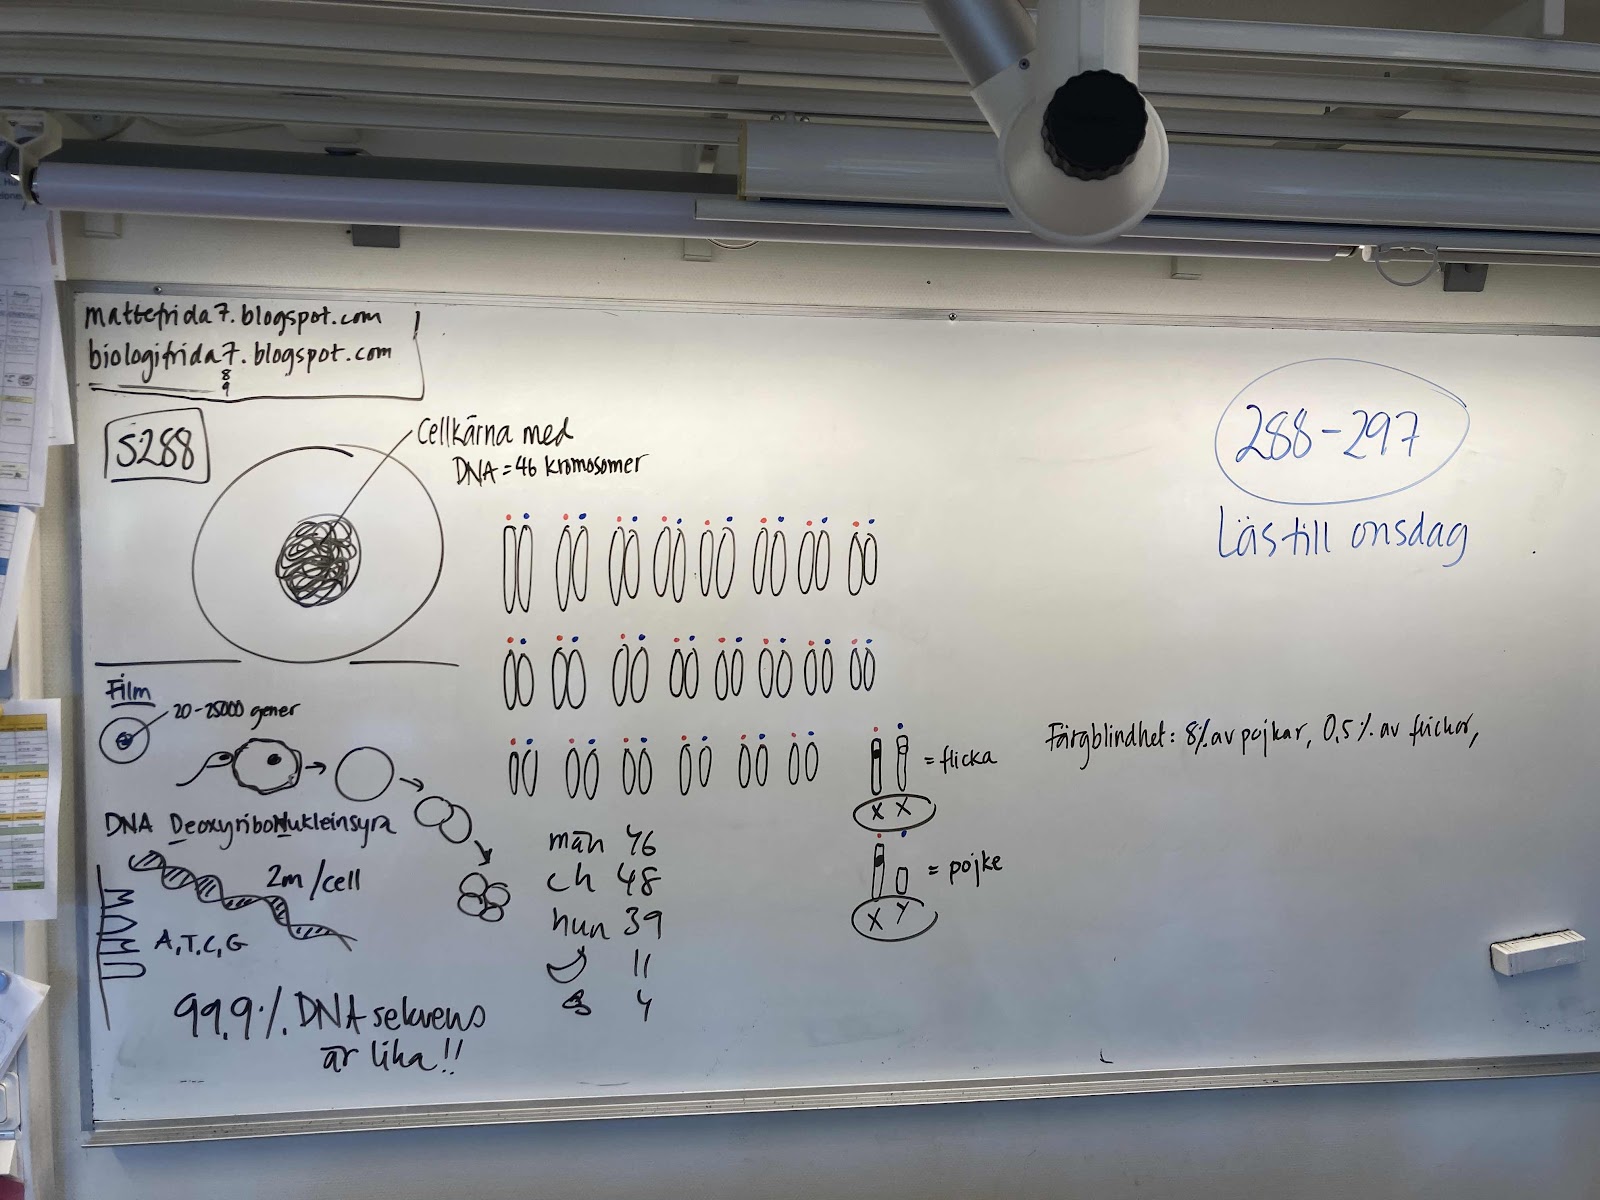 mattefrida7.blogspot.com
biologifrida7.blogspot.com
8
9
S288
Cellkärna med
DNA = 46 kromosomer
288-297
Läs till onsdag
Film
20-25000 gener
DNA DeoxyriboNukleinsyra
2m/cell
A,T,C,G
99.9% DNA sekvens
är lika!!
män 46
ch 48
hun 39
11
4
= flicka
X X
= pojke
X Y
Färgblindhet: 8% av pojkar, 0,5% av flickor,